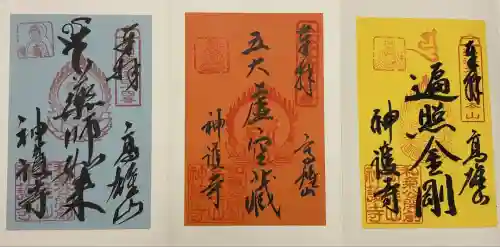 奉拝
高雄山
薬師如来
神護寺
奉拝
高雄山
五大虚空蔵
神護寺
奉拝
高雄山
遍照金剛
神護寺